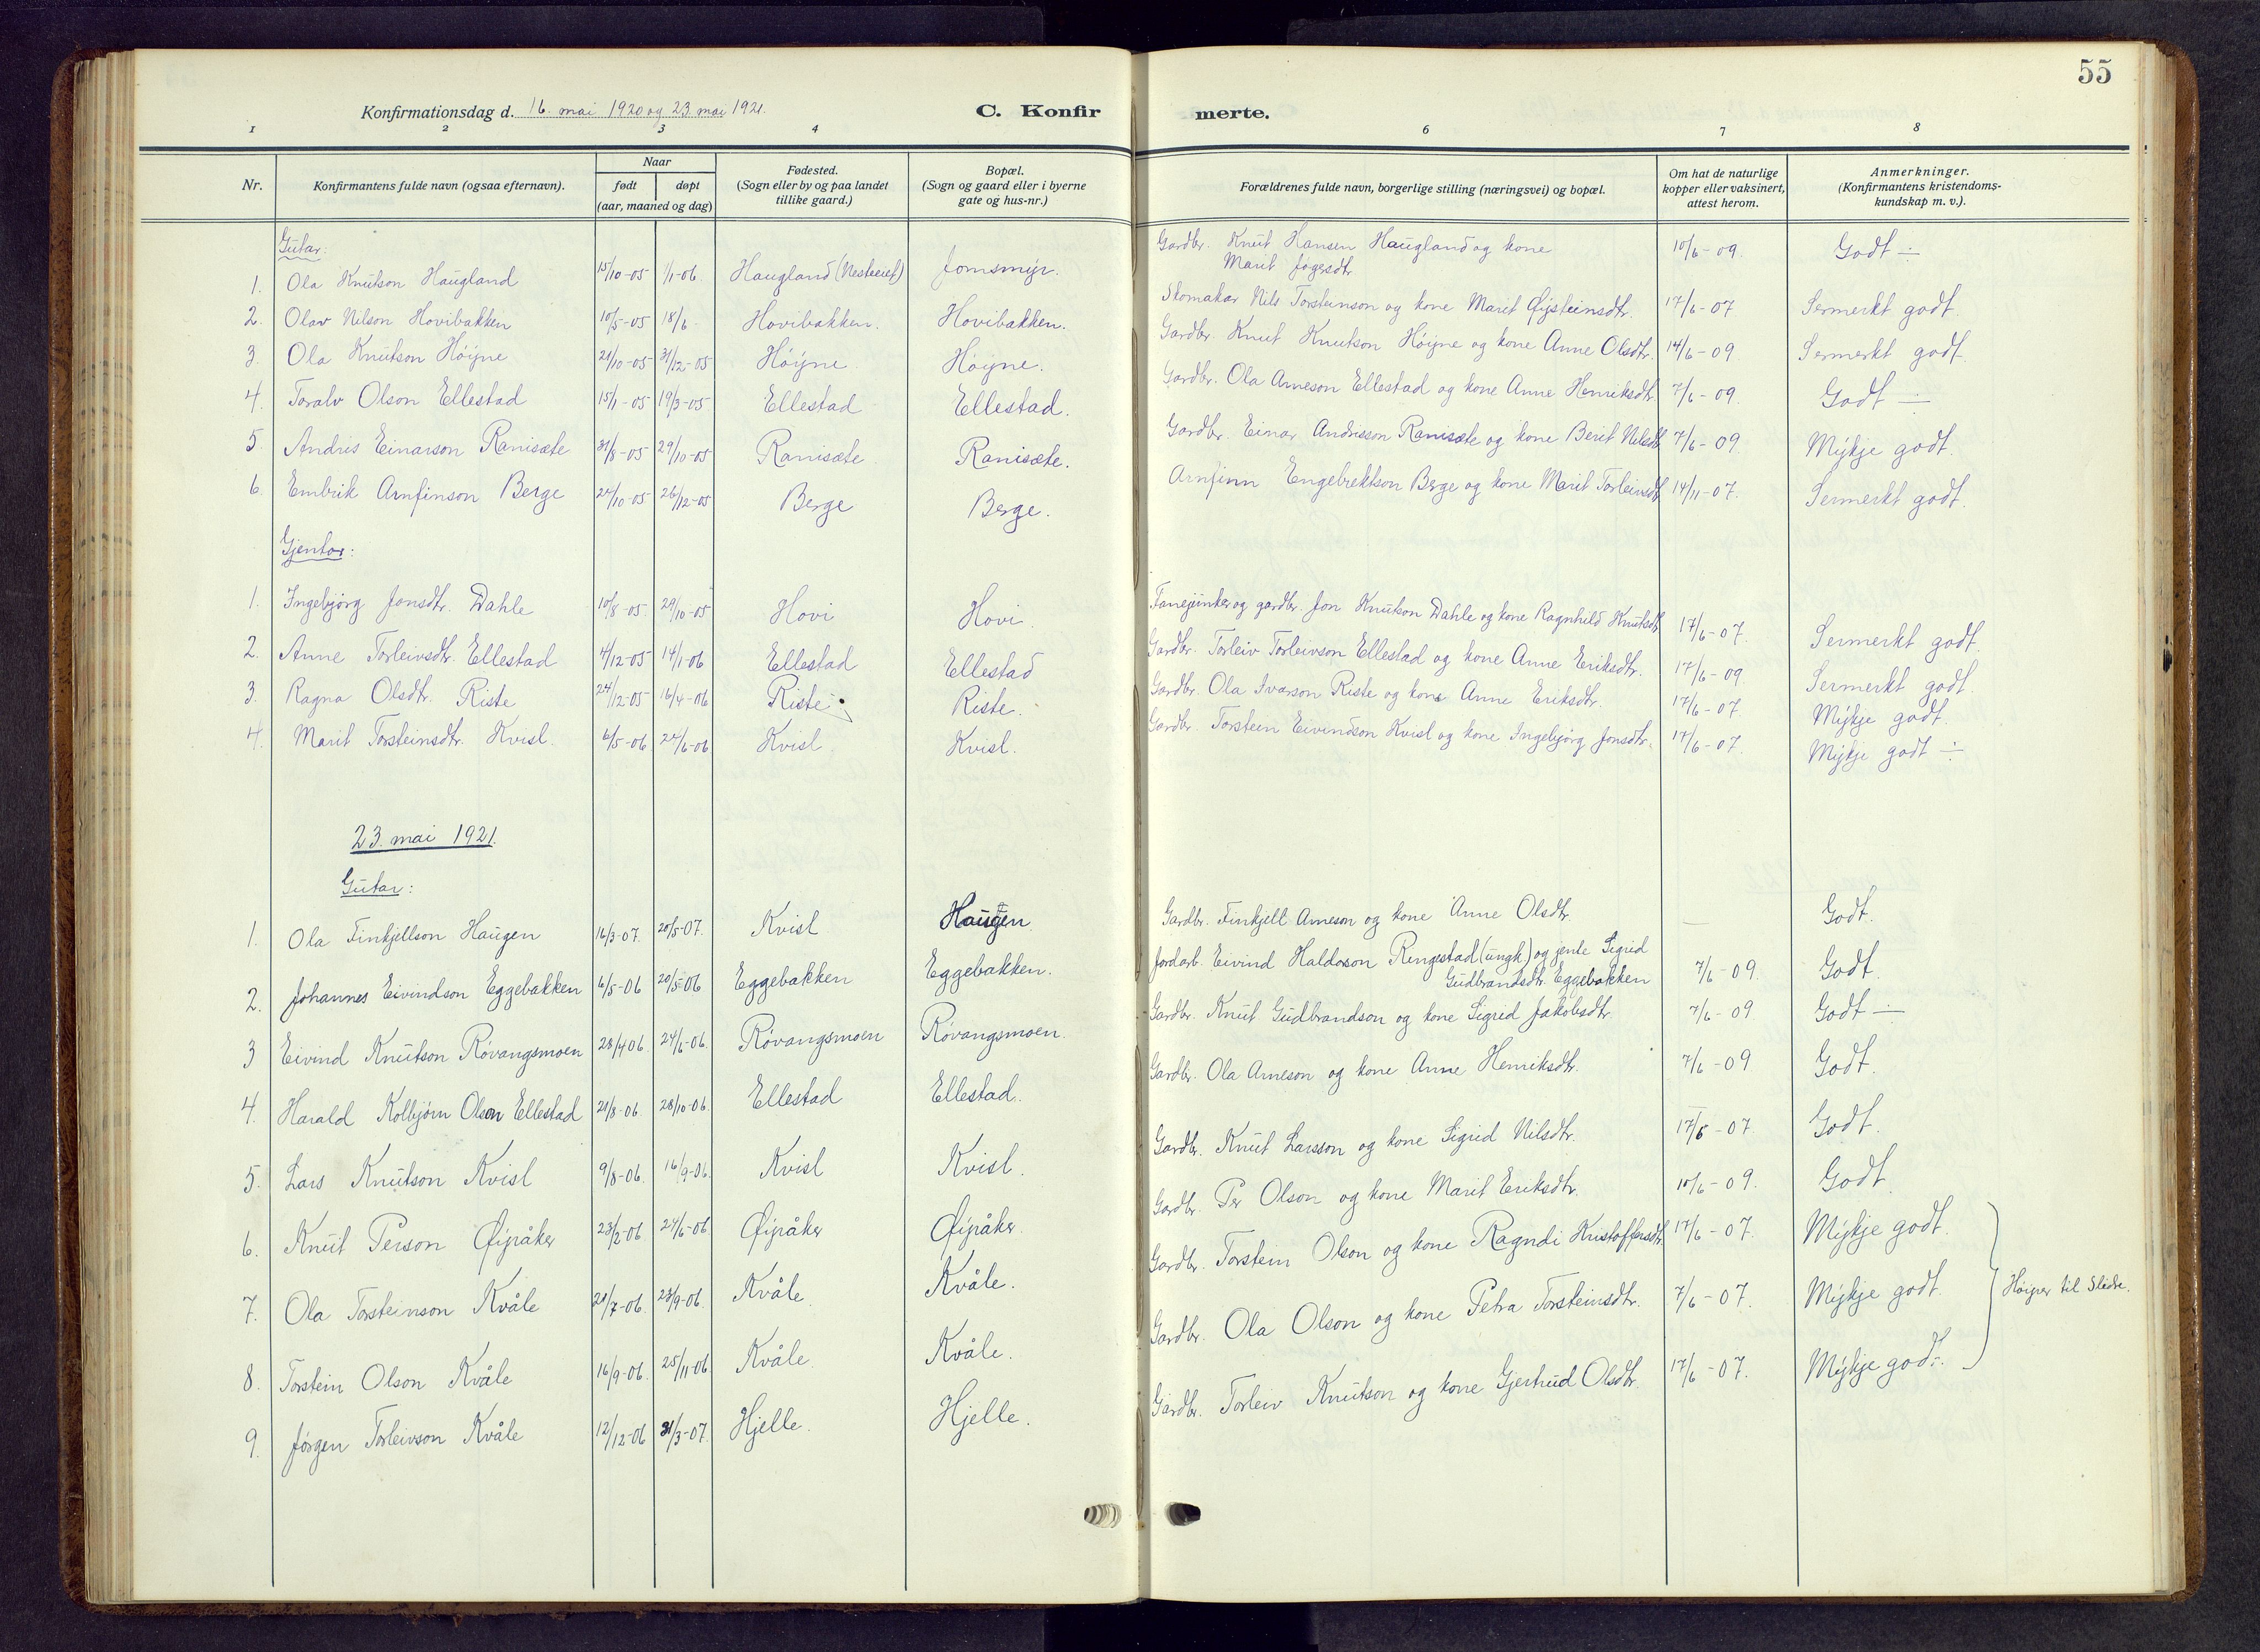 55
Konfirmationsdag d. 16. mai 1920 og 23. mai 1921. C. Konfir merte.
1 2 3 4 6 7 8
Nr. Konfirmantens fulde navn (ogsaa efternavn). Naar født døpt (aar, maaned og dag) Fødested. (Sogn eller by og paa landet tillike gaard.) Bopæl. (Sogn og gaard eller i byerne gate og hus-nr.) Forældrenes fulde navn, borgerlige stilling (næringsvei) og bopæl. Om hat de naturlige kopper eller vaksinert, attest herom. Anmerkninger. (Konfirmantens kristendoms-kundskap m. v.).
Gutar:
1. Ola Knutson Haugland 15/10-05 1/1-06. Haugland Jomsmyr. Gardbr. Knut Hansen Haugland og kone Marit 10/6-09. Godt ÷
2. Olav Nilson Hovibakken 10/5-05 18/6 Hovibakken. Hovibakken. Skomakar Nils Torsteinson og kone Marit Øysteinsdtr. 17/6-07 Sermerkt godt.
3. Ola Knutson Höyne 21/10-05 31/12-05 Höyne. Höyne. Gardbr. Knut Knutson Höyne og kone Anne Olsdtr. 14/6-09. Sermerkt godt.
4. Toralv Olson Ellestad 15/1-05 19/3-05 Ellestad Ellestad. Gardbr. Ola Arneson Ellestad og kone Anne Henriksdtr. 7/6-09. Godt ÷
5 Andris Einarson Ranisæte 31/8-05 29/10-05 Ranisæte Ranisæte. Gardbr. Einar Andrisson Ranisæte og kone Berit Nilsdtr. 7/6-09 Mykje godt.
6. Embrik Arnfinson Berge 24/10-05 26/12-05 Berge Berge. Arnfinn Engebrektson Berge og kone Marit Torleivsdtr. 14/11-07. Sermerkt godt.
Gjentor:
1. Ingebjörg Jonsdtr. Dahle 10/8-05. 29/10-05 Hovi Hovi. Fanejunker og gardbr. Jon Knutson Dahle og kone Ragnhild Knutsdtr. 17/6-07. Sermerkt godt.
2. Anne Torleivsdtr. Ellestad 4/12-05 14/1-06 Ellestad Ellestad Gardbr. Torleiv Torleivson Ellestad og kone Anne Eriksdtr. 17/6-09 Sermerkt godt.
3. Ragna Olsdtr. Riste 24/12-05 16/4-06 Riste Riste. Gardbr. Ola Ivarson Riste og kone Anne Eriksdtr. 17/6-07 Mykje godt.
4. Marit Torsteinsdtr. Kvisl. 6/5-06 24/6-06 Kvisl Kvisl. Gardbr. Torstein Eivindson Kvisl og kone Ingebjörg Jonsdtr. 17/6-07. Mykje godt ÷
23. mai 1921.
Gutar:
1. Ola Finkjellson Haugen 16/3-07. 20/5-07. Kvisl Haugen Gardbr. Finkjell Arneson og kone Anne Olsdtr. — Godt.
2. Johannes Eivindson Eggebakken 6/5-06 20/5-06 Eggebakken Eggebakken. Jordarb. Eivind Haldorson Ringestad (ungk.) og jente Sigrid Gudbrandsdtr. Eggebakken 7/6-09. Godt.
3 Eivind Knutson Rövangsmoen 28/4 06. 24/6-06. Rövangsmoen Rövangsmoen. Gardbr. Knut Gudbrandson og kone Sigrid Jakobsdtr. 7/6-09. Godt ÷
4. Harald Kolbjörn Olson Ellestad 21/8-06. 28/10-06. Ellestad Ellestad. Gardbr. Ola Arneson og kone Anne Henriksdtr. 7/6-09. Godt.
5. Lars Knutson Kvisl 9/8-06. 16/9-06. Kvisl Kvisl. Gardbr. Knut Larsson og kone Sigrid Nilsdtr. 17/6-07. Godt.
6. Knut Person Øyråker 23/2-06 24/6-06 Øyråker Øyråker. Gardbr. Per Olson og kone Marit Eriksdtr. 10/6-09. Godt.
7. Ola Torsteinson Kvåle 21/7-06. 23/9-06. Kvåle. Kvåle. Gardbr. Torstein Olson og kone Ragndi Kristoffersdtr. 17/6-07. Mykje godt.
8. Torstein Olson Kvåle 16/9-06. 25/11-06 Kvåle. Kvåle. Gardbr. Ola Olson og kone Petra Torsteinsdtr. 7/6-07. Mykje godt.
Höyrer til Slidre.
9. Jörgen Torleivson Kvåle 12/12-06 31/3-07. Hjelle. Hjelle. Gardbr. Torleiv Knutson og kone Gjertrud Olsdtr. 17/6-07. Mykje godt.